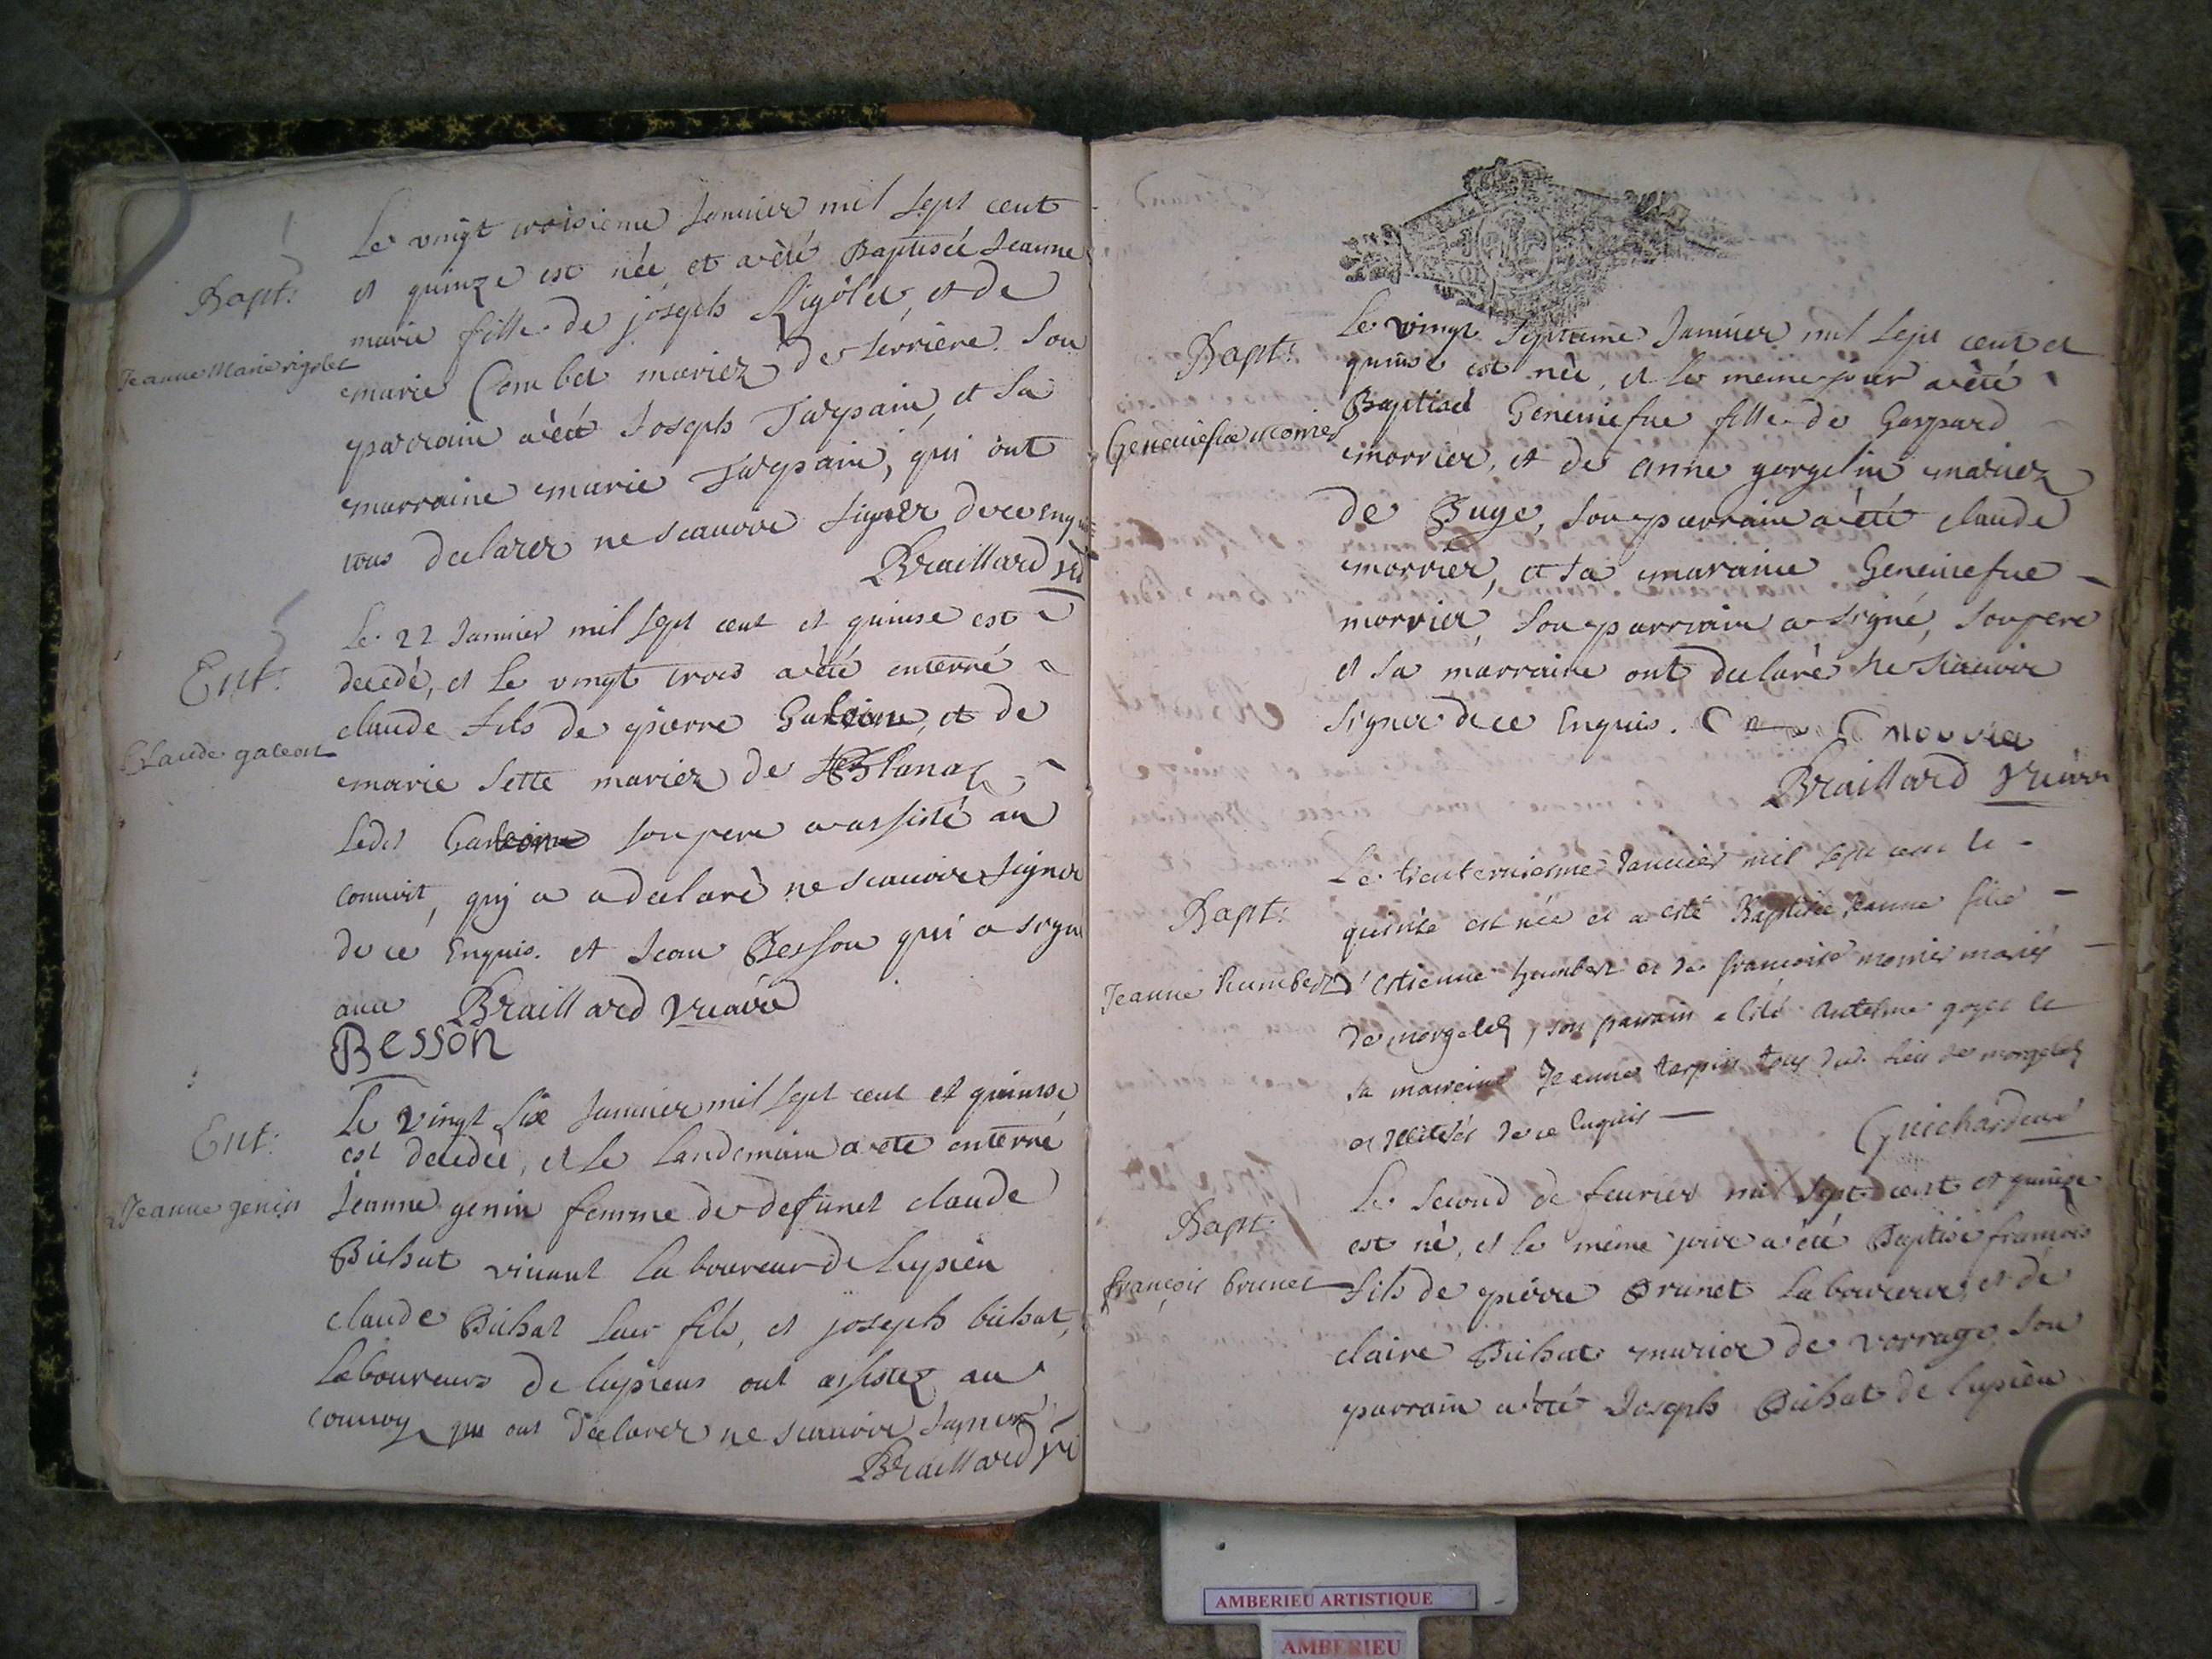 Le vingt troisieme Januier mil sept cent
Bapt: et quinze est née et a èté Baptisée Jeanne
marie fille de joseph Rigolet, et de
Jeanne Marie rigolet
marie Combet mariez de serriere. son
parrain a èté Joseph Tarpain, et sa
marraine marie Tarpain, qui ont
tous declarer ne scauoir signer de ce enquis
Braillard
Le 22 Januier mil sept cent et quinse est
Ent: decedé, et le vingt trois a èté enterré
claude fils de pierre, et de
Claude galeon
marie sette mariez de
ledit son pere a assisté au
conuoit, quj a a declarè ne scauoir signer
de ce Enquis. et Jean Besson qui a signé
auec Braillard vicaire
Besson
Le vingt six Januier mil sept cent et quinse
Ent: est decedée, et le landemain a ete enterré
Jeanne genin
Jeanne genin femme de defunct claude
Bichat viuant laboureur de lupieu
claude Bichat leur fils, et joseph bichat,
laboureurs de lupieu ont assistez au
conuoy qui ont declarer ne scauoir signer
Braillard
Le vingt septieme Januier mil sept cent et
Bapt: quinse est née, et le meme jour a èté
Baptisé Geneuiefue fille de Gaspard
Geneuiefue morrier
morrier, et de anne gorgelin mariez
de Buge, son parrain a èté claude
morrier, et sa maraine Geneuiefue
morrier, son parrain a signé, son pere
et sa marraine ont declaré ne scauoir
signer de ce Enquis. C morrier
Braillard vicaire
Le trente uniesme Januier mil sept cent et
Bapt: quinze est née et a esté Baptisée Jeanne fille
Jeanne humbert
d'estienne humbert et de francoise mornier mariés
de morgelas, son parrain a été antelme goyet et
sa maraine Jeanne tarpin tous du lieu de morgelas
et de ce enquis
Guichard curé
Le second de feurier mil sept cent et quinze
Bapt: est né, et le même jour a èté Baptisé françois
françois brunet
fils de pierre Brunet laboureur, et de
claire Bichat mariez de vorrage, son
parrain a èté Joseph Bichat de lupieu
AMBERIEU ARTISTIQUE
AMBERIEU